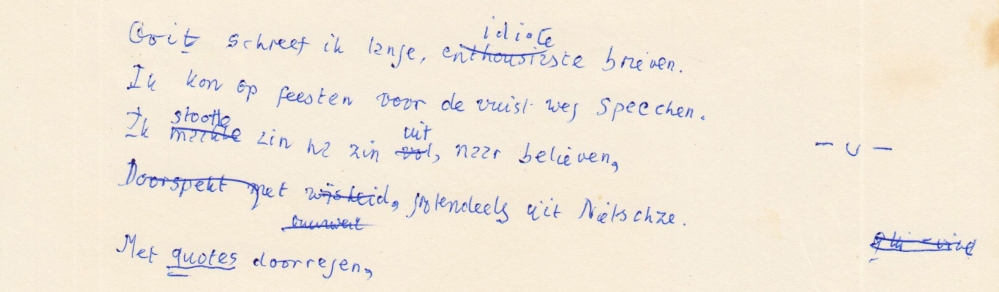 idiote
Ooit schreef ik lange, enthousiaste brieven.
Ik kon op feesten voor de vuist weg speechen.
stootte uit
Ik maakte zin na zin vol, naar believen,
– ∪ –
Doorspekt met wijsheid, grotendeels uit Nietschze.
Met quotes doorregen,